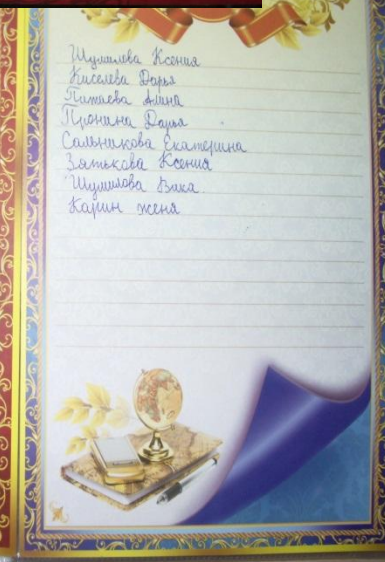 Шумилова Ксения
Киселева Дарья
Питаева Алина
Пронина Дарья
Сальникова Екатерина
Зятькова Ксения
Шумилова Вика
Карин женя